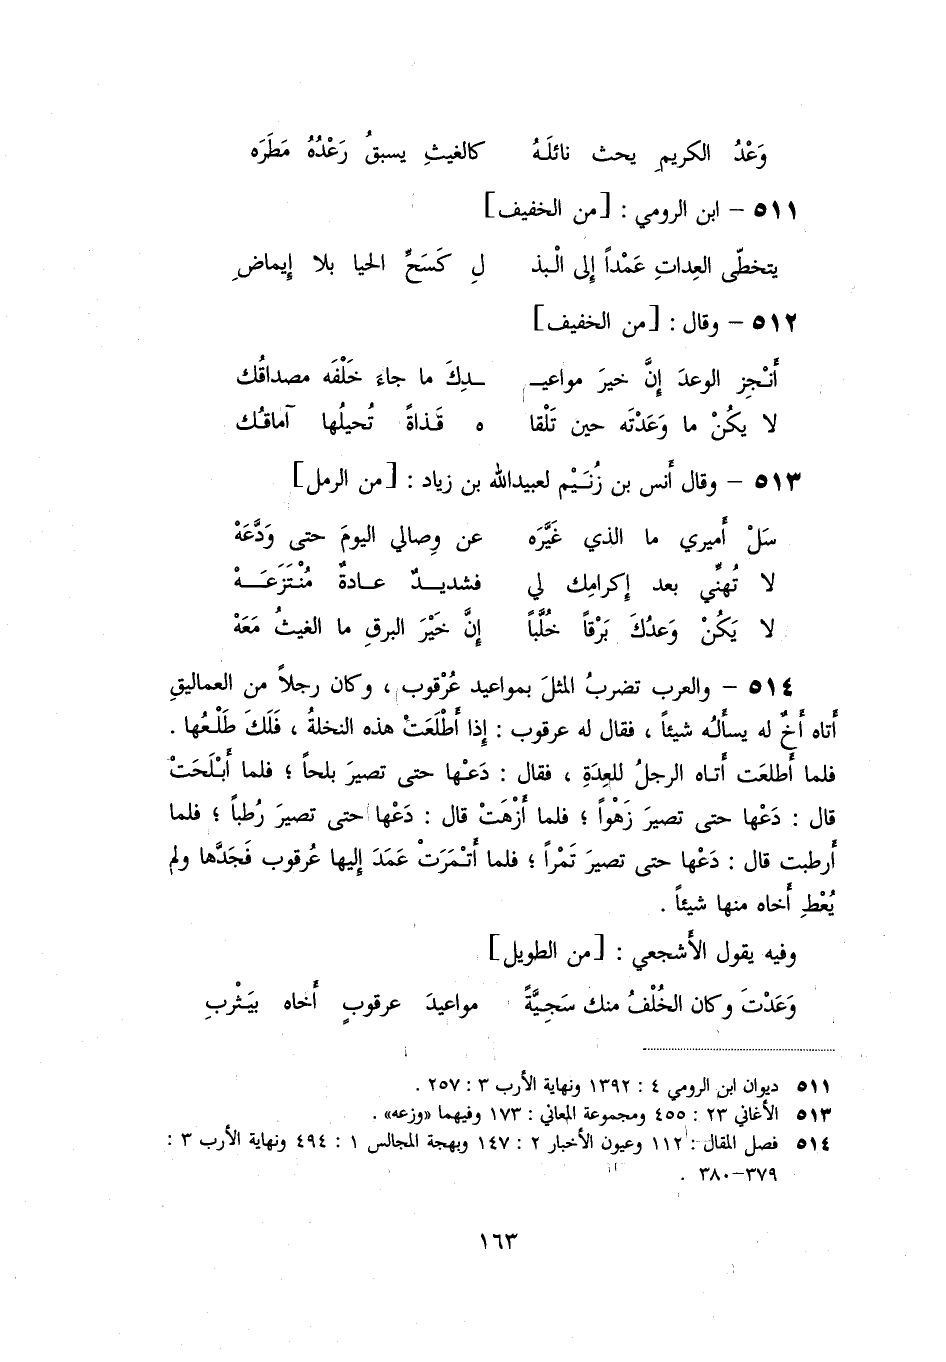 وَعْدُ الكريمِ يحث نائلَهُ كالغيثِ يسبقُ رَعْدُهُ مَطَرَه
٥١١ – ابن الرومي : [من الخفيف]
يتخطّى العِداتِ عَمْداً إلى الْبذ لِ كَسَحِّ الحيا بلا إيماضِ
٥١٢ – وقال : [من الخفيف]
أَنْجِزِ الوعدَ إنَّ خيرَ مواعيـ ـدِكَ ما جاءَ خَلْفَه مصداقُك
لا يكُنْ ما وَعَدْتَه حين تَلْقا ه قَذاةً تُحيلُها آماقُك
٥١٣ – وقال أنس بن زُنَيْم لعبيدالله بن زياد : [من الرمل]
سَلْ أميري ما الذي غَيَّرَه عن وِصالي اليومَ حتى وَدَّعَهْ
لا تُهنِّي بعد إكرامِك لي فشديدٌ عادةٌ مُنْتَزَعَهْ
لا يَكُنْ وَعدُكَ بَرْقاً خُلَّباً إنَّ خَيْرَ البرقِ ما الغيثُ مَعَهْ
٥١٤ – والعرب تضربُ المثلَ بمواعيد عُرْقوب ، وكان رجلاً من العماليقِ
أتاه أخٌ له يسألُه شيئاً ، فقال له عرقوب : إذا أَطْلَعَتْ هذه النخلةُ ، فَلَكَ طَلْعُها .
فلما أطلعَت أتاه الرجلُ للعِدَةِ ، فقال : دَعْها حتى تصيرَ بلحاً ؛ فلما أَبْلَحَتْ
قال : دَعْها حتى تصيرَ زَهْواً ؛ فلما أَزْهَتْ قال : دَعْها حتى تصيرَ رُطباً ؛ فلما
أرطبت قال : دَعْها حتى تصيرَ تَمْراً ؛ فلما أَتْمَرَتْ عَمَدَ إليها عُرقوب فَجَدَّها ولم
يُعْطِ أخاه منها شيئاً .
وفيه يقول الأشجعي : [من الطويل]
وَعَدْتَ وكان الخُلْفُ منك سَجِيَّةً مواعيدَ عرقوبٍ أخاه بيَثْربِ
٥١١ ديوان ابن الرومي ٤ : ١٣٩٢ ونهاية الأرب ٣ : ٢٥٧ .
٥١٣ الأغاني ٢٣ : ٤٥٥ ومجموعة المعاني : ١٧٣ وفيهما «وزعه» .
٥١٤ فصل المقال : ١١٢ وعيون الأخبار ٢ : ١٤٧ وبهجة المجالس ١ : ٤٩٤ ونهاية الأرب ٣ :
٣٧٩–٣٨٠ .
١٦٣